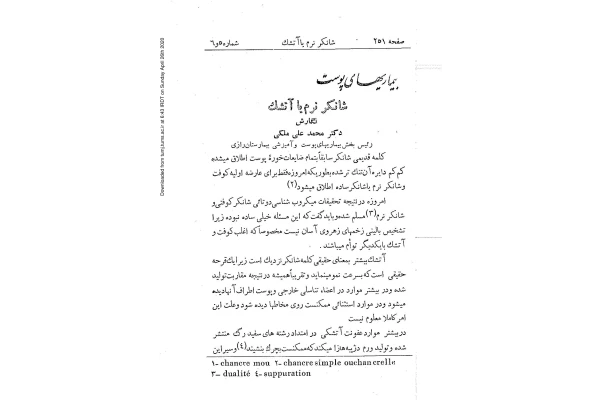 صفحه ۲۵۱ شانکر نرم یا آتشك شماره ۵و۶
بیماریهای پوست
شانکر نرم یا آتشك
نگارش
دکتر محمد علی ملکی
رئیس بخش بیماریهای پوست و آمیزشی بیمارستان رازی
کلمه قدیمی شانکر سابقاً بتمام ضایعات خورۀ پوست اطلاق میشده
کم کم دایره آن تنك تر شده بطوریکه امروزه فقط برای عارضه اولیه کوفت
وشانکر نرم یا شانکر ساده اطلاق میشود (۲)
امروزه در نتیجه تحقیقات میکروب شناسی دوتائی شانکر کوفتی و
شانکر نرم (۳) مسلم شده و باید گفت که این مسئله خیلی ساده نبوده زیرا
تشخیص بالینی زخمهای زهروی آسان نیست مخصوصاً که اغلب کوفت و
آتشك با یکدیگر توأم میباشند .
آتشك بیشتر بمعنای حقیقی کلمه شانکر نزدیك است زیرا یك قرحه
حقیقی است که بسرعت نمو مینماید و تقریباً همیشه در نتیجه مقاربت تولید
شده و در بیشتر موارد در اعضاء تناسلی خارجی و پوست اطراف آنها دیده
میشود و در موارد استثنائی ممکنست روی مخاطها دیده شود و علت این
امر کاملا معلوم نیست
در بیشتر موارد عفونت آتشکی در امتداد رشته های سفید رگ منتشر
شده و تولید ورم در پیه ها را میکند که ممکنست بچرك بنشیند (٤) و سیر این
۱- chancre mou ۲- chancre simple ou chancrelle
۳- dualité ٤- suppuration
Downloaded from tumj.tums.ac.ir at 6:43 IRDT on Sunday April 26th 2020